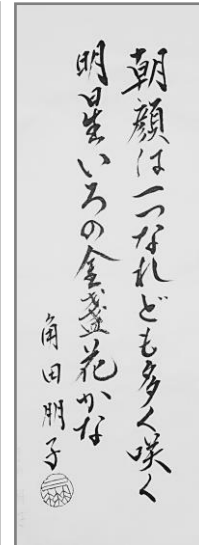 朝顔は一つなれども多く咲く
明星いろの金盞花かな
角田朋子